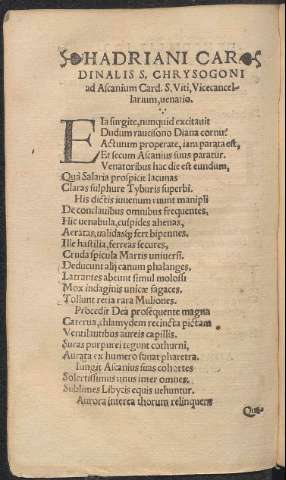 HADRIANI CAR
DINALIS S. CHRYSOGONI
ad Ascanium Card. S. Viti, Vicecancel-
larium, uenatio.
EIa surgite, nunquid excitauit
Dudum raucisono Diana cornu?
Actutum properate, iam parata est,
Et secum Ascanius suus paratur.
Venatoribus hac die est eundum,
Quà Salaria prospicit lacunas
Claras sulphure Tyburis superbi.
His dictis iuuenum ruunt manipli
De conclauibus omnibus frequentes,
Hic uenabula, cuspides ahenas,
Aeratas, ualidasq; fert bipennes,
Ille hastilia, ferreas secures,
Cruda spicula Martis uniuersi.
Deducunt alij canum phalanges,
Latrantes abeunt simul molossi
Mox indaginis unicæ sagaces.
Tollunt retia rara Muliones.
Procedit Dea prosequente magna
Caterua, chlamydem recincta pictam
Ventilantibus aureis capillis.
Suras purpurei tegunt cothurni,
Aurata ex humero sonat pharetra.
Iungit Ascanius suas cohortes
Solertissimus unus inter omnes.
Sublimes Libycis equis uehuntur.
Aurora interea thorum relinquens